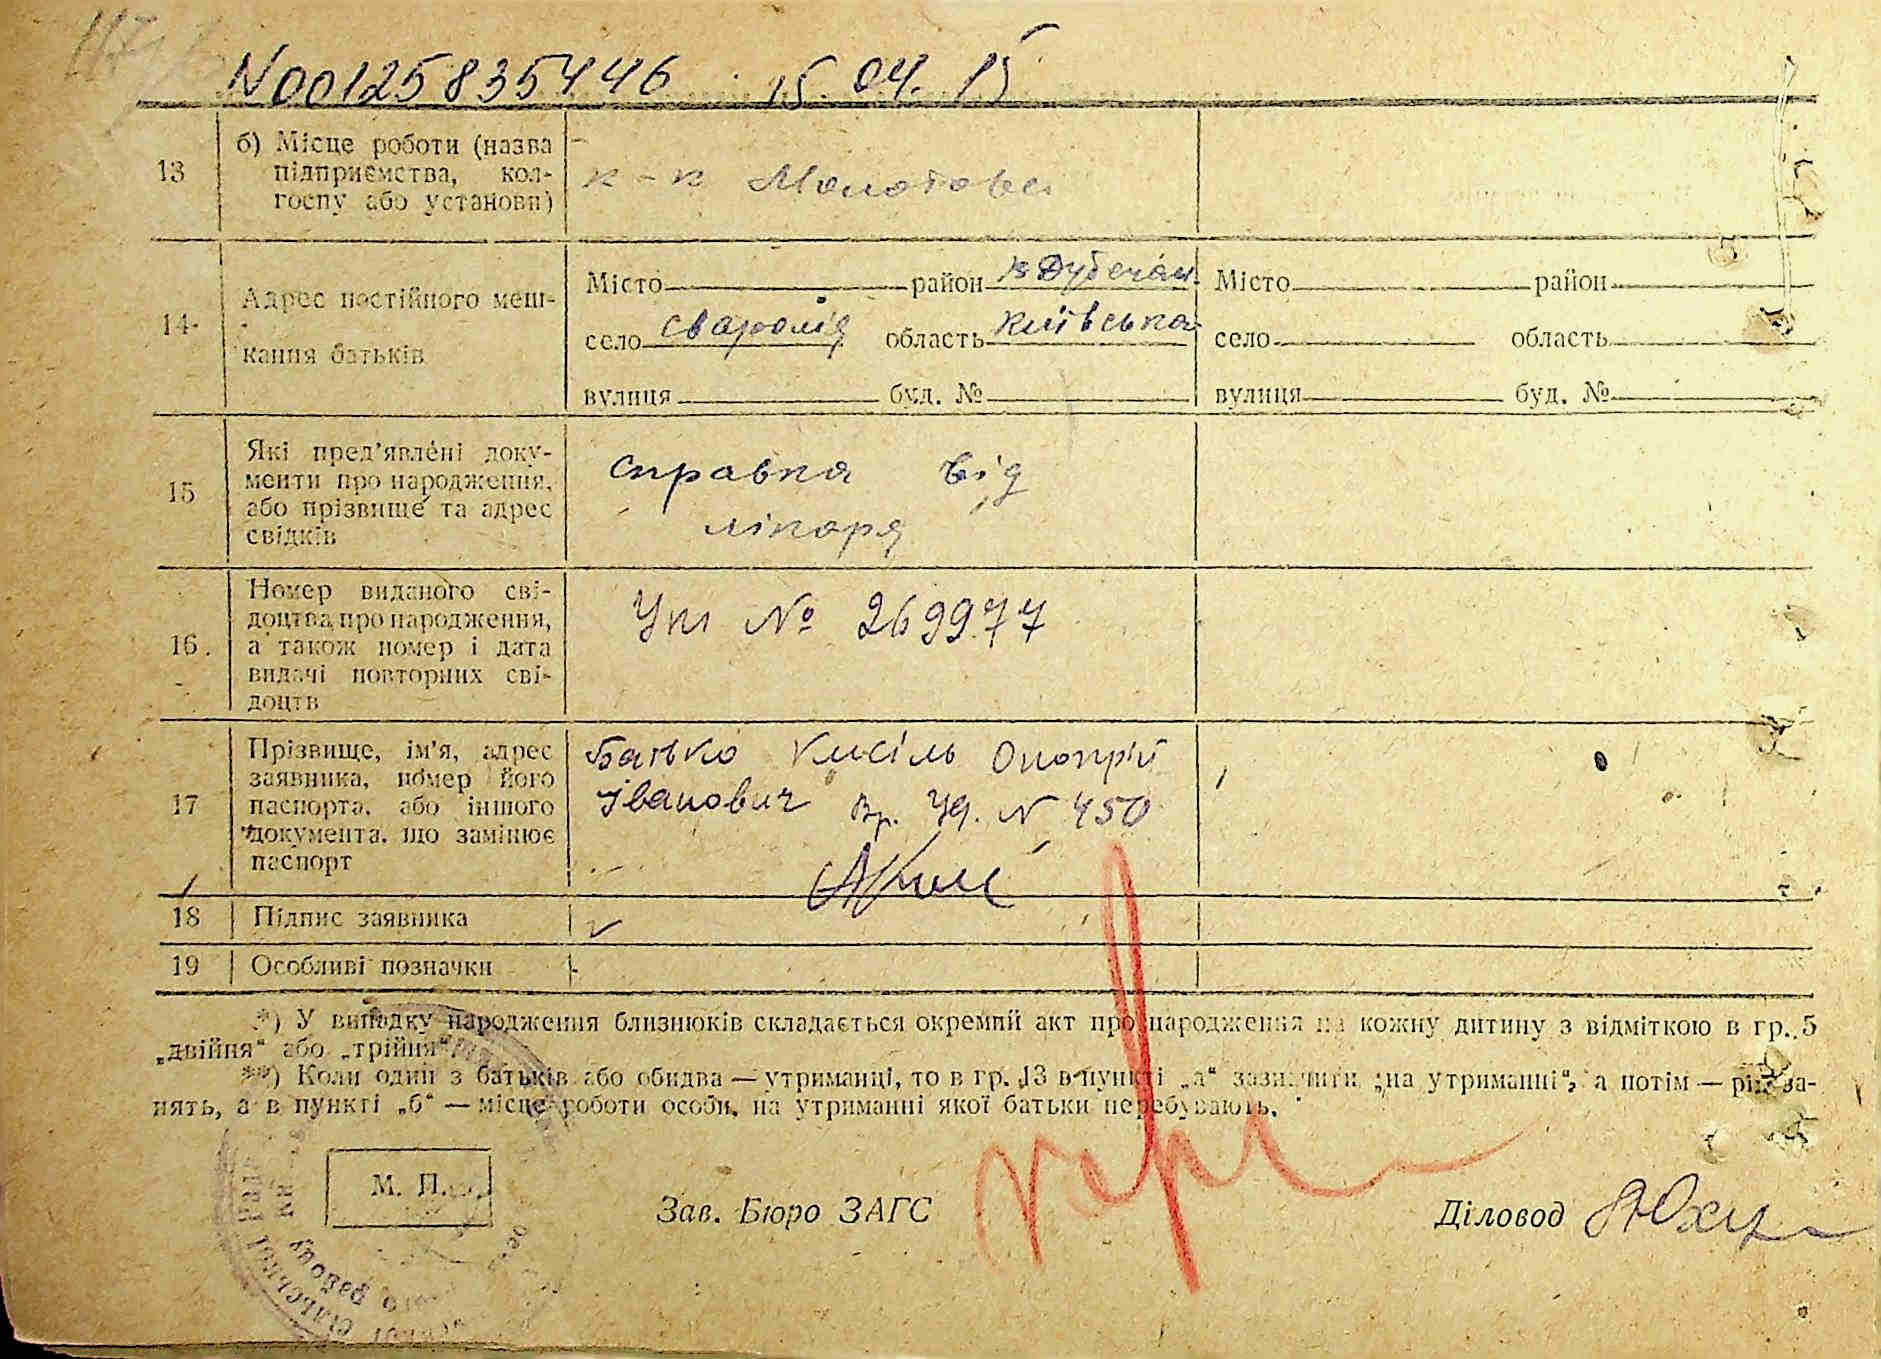 N00125835446 15.04.15
13
б) Місце роботи (назва
підприємства, кол-
госпу або установи)
к-п Молотова
14
Адрес постійного меш-
кання батьків
Місто район В Дубечан. Місто район
село Сваромія область Київська село область
вулиця буд. № вулиця буд. №
15
Які пред'явлені доку-
менти про народження,
або прізвище та адрес
свідків
справка від
лікаря
16.
Номер виданого сві-
доцтва про народження,
а також номер і дата
видачі повторних сві-
доцтв
№ 269977
17
Прізвище, ім'я, адрес
заявника, номер його
паспорта, або іншого
документа, що замінює
паспорт
Батько Кисіль Онопрій
Іванович Вр. Уд. N 450
18 Підпис заявника
19 Особливі позначки
*) У випадку народження близнюків складається окремий акт про народження на кожну дитину з відміткою в гр. 5
„двійня“ або „трійня“.
**) Коли один з батьків або обидва — утриманці, то в гр. 13 в пункті „а“ зазначити „на утриманні“, а потім — рід за-
нять, а в пункті „б“ — місце роботи особи, на утриманні якої батьки перебувають.
М. П.
Зав. Бюро ЗАГС
Діловод